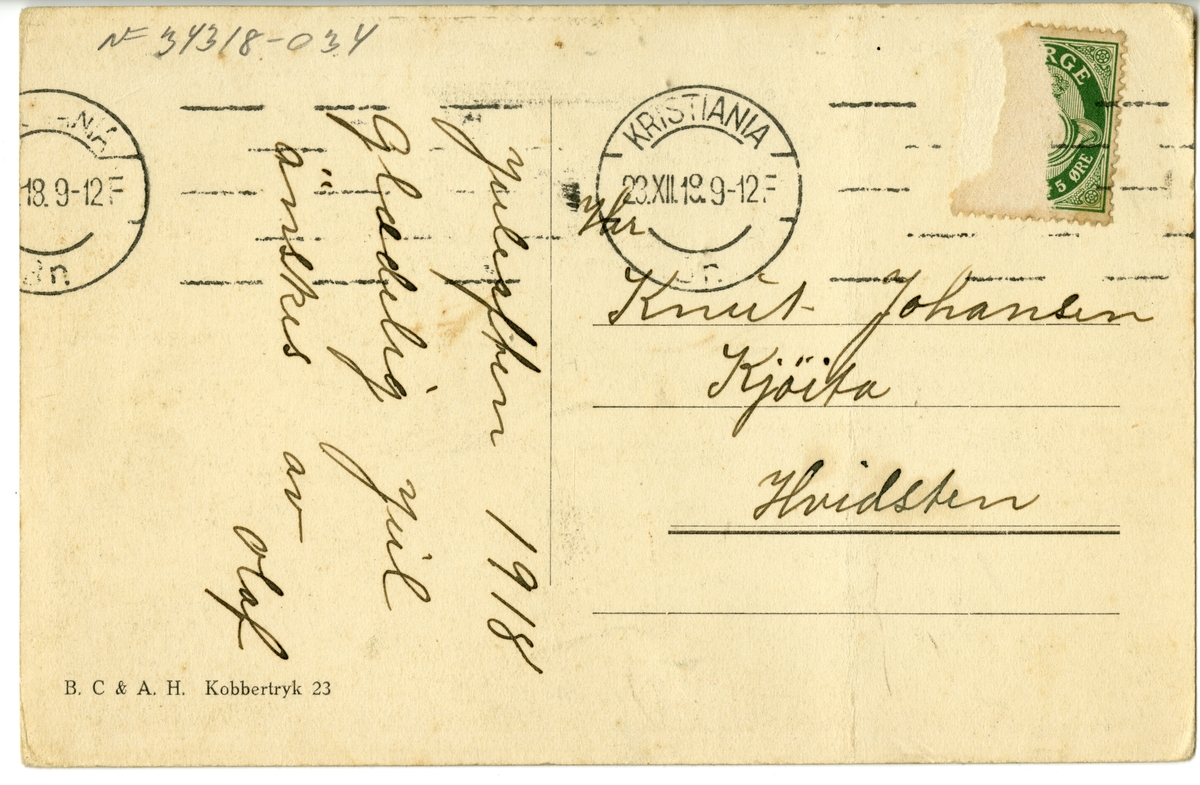 № 34318-034
KRISTIANIA
18. 9-12 F
KRISTIANIA
23.XII.18. 9-12 F
RGE
5 ØRE
Juleaften 1918
Glædelig Jul
önskes av
Olaf
Hr
Knut Johansen
Kjöita
Hvidsten
B. C & A. H. Kobbertryk 23